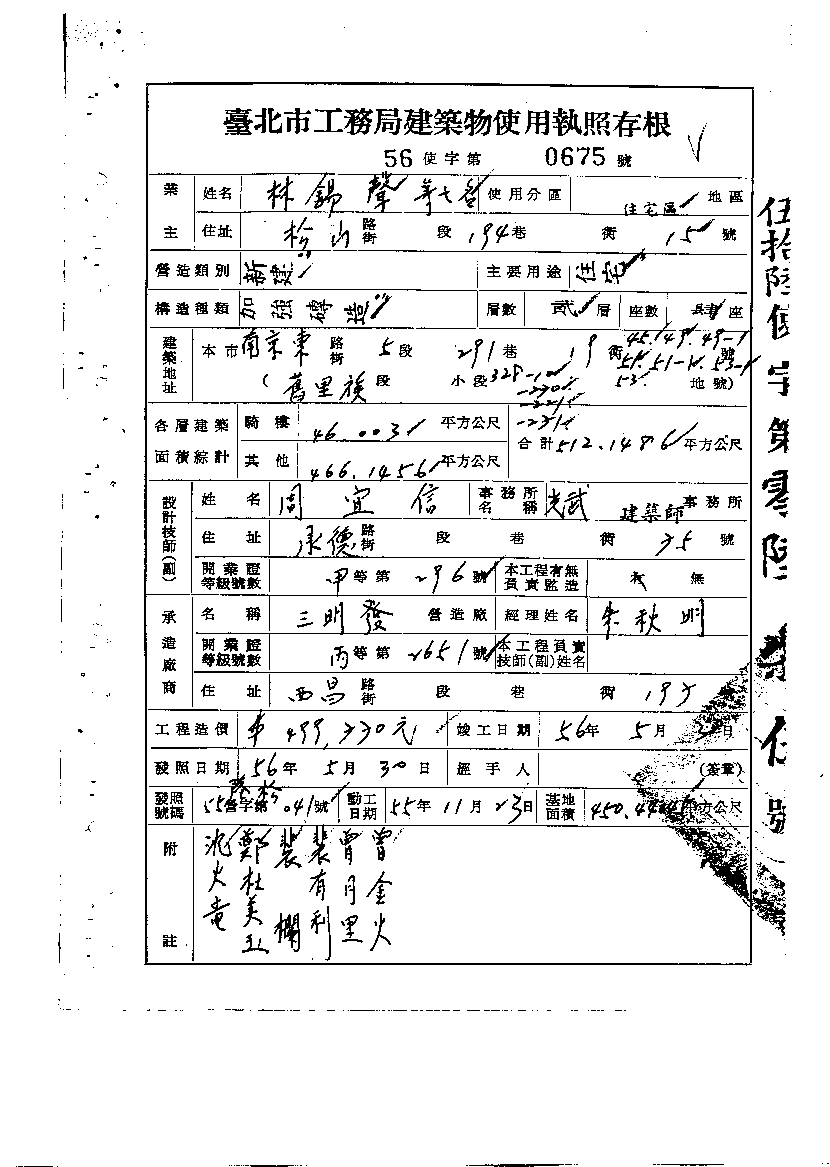 臺北市工務局建築物使用執照存根
56 使字第 0675 號
業主 姓名 林錫聲等七名 使用分區 住宅區 地區
住址 松山 路街 段 194 巷 衖 15 號
營造類別 新建 主要用途 住宅
構造種類 加強磚造 層數 貳 層 座數 座
建築地址 本市 南京東 路街 5 段 291 巷 19 衖 45. 47. 49. 49-1 51. 51-1. 53-1 53. 號
( 舊里族 段 小段 328-10 -230 -221 -231 地號)
各層建築面積綜計 騎樓 46.003 平方公尺 合計 512.1486 平方公尺
其他 466.1456 平方公尺
設計技師(副) 姓名 周宜信 事務所名稱 光武 建築師 事務所
住址 承德 路街 段 巷 衖 35 號
開業證等級號數 甲 等第 296 號 本工程有無負責監造 有 無
承造廠商 名稱 三明發 營造廠 經理姓名 朱秋明
開業證等級號數 丙 等第 2651 號 本工程負責技師(副)姓名
住址 西昌 路街 段 巷 衖 195
工程造價 499,330元 竣工日期 56年 5月 日
發照日期 56年 5月 30日 經手人 (簽章)
發照號碼 55 營字第 041 號 動工日期 55年 11月 23日 基地面積 450.4444 平方公尺
附註
曾金火
曾月里
裴有利
裴欄
鄭杜美玉
沈火
伍拾陸使字第零陸柒伍號